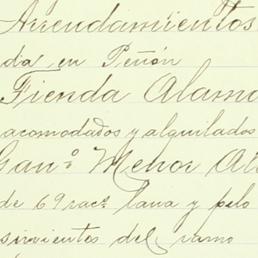 Arrendamientos
da, en Peñón
Tienda Alamo
acomodados y alquilados
Ganº Menor Al
de 69 racs lana y pelo
sirvientes del ramo